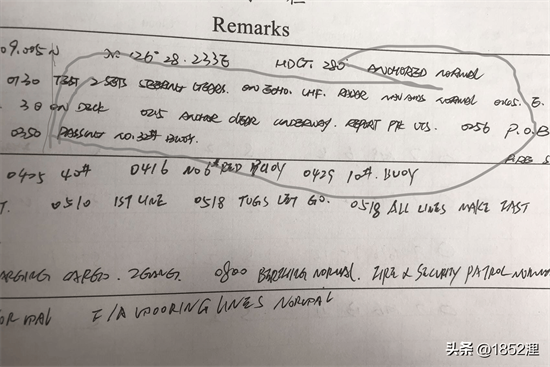 Remarks
009.005N 126° 28.233E HDG. 280° ANCHORED NORMAL
0130 TEST 2 SETS STEERING GEARS. ECHO. VHF. RADAR NAV AIDS NORMAL
ON DECK 0215 ANCHOR CLEAR UNDERWAY. REPORT VTS. 0256 P.O.B
0350 PASSING NO.32# BUOY.
0405 40# 0416 NO6# RED BUOY 0429 10#. BUOY
0510 1ST LINE 0518 TUGS LET GO. 0518 ALL LINES MAKE FAST
CARGO. 2GANG. 0800 BERTHING NORMAL. FIRE & SECURITY PATROL NORMAL
MOORING LINES NORMAL
头条 @1852浬